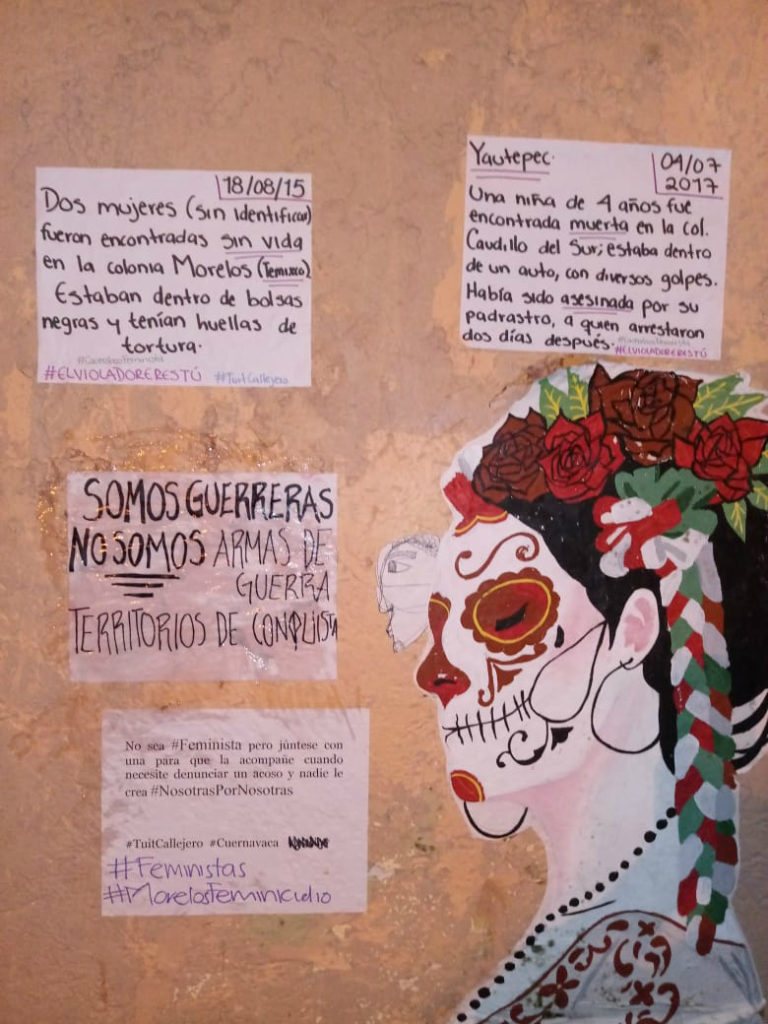 18/08/15
Dos mujeres (sin identificar)
fueron encontradas sin vida
en la colonia Morelos (Temixco).
Estaban dentro de bolsas
negras y tenían huellas de
tortura.
#ELVIOLADORERESTÚ #TuitCallejero
Yautepec.
04/07
2017
Una niña de 4 años fue
encontrada muerta en la col.
Caudillo del Sur; estaba dentro
de un auto, con diversos golpes.
Había sido asesinada por su
padrastro, a quien arrestaron
dos días después.
#ELVIOLADORERESTÚ
SOMOS GUERRERAS
NO SOMOS ARMAS DE
GUERRA
TERRITORIOS DE CONQÜISTA
No sea #Feminista pero júntese con
una para que la acompañe cuando
necesite denunciar un acoso y nadie le
crea #NosotrasPorNosotras
#TuitCallejero #Cuernavaca
#Feministas
#MorelosFeminicidio